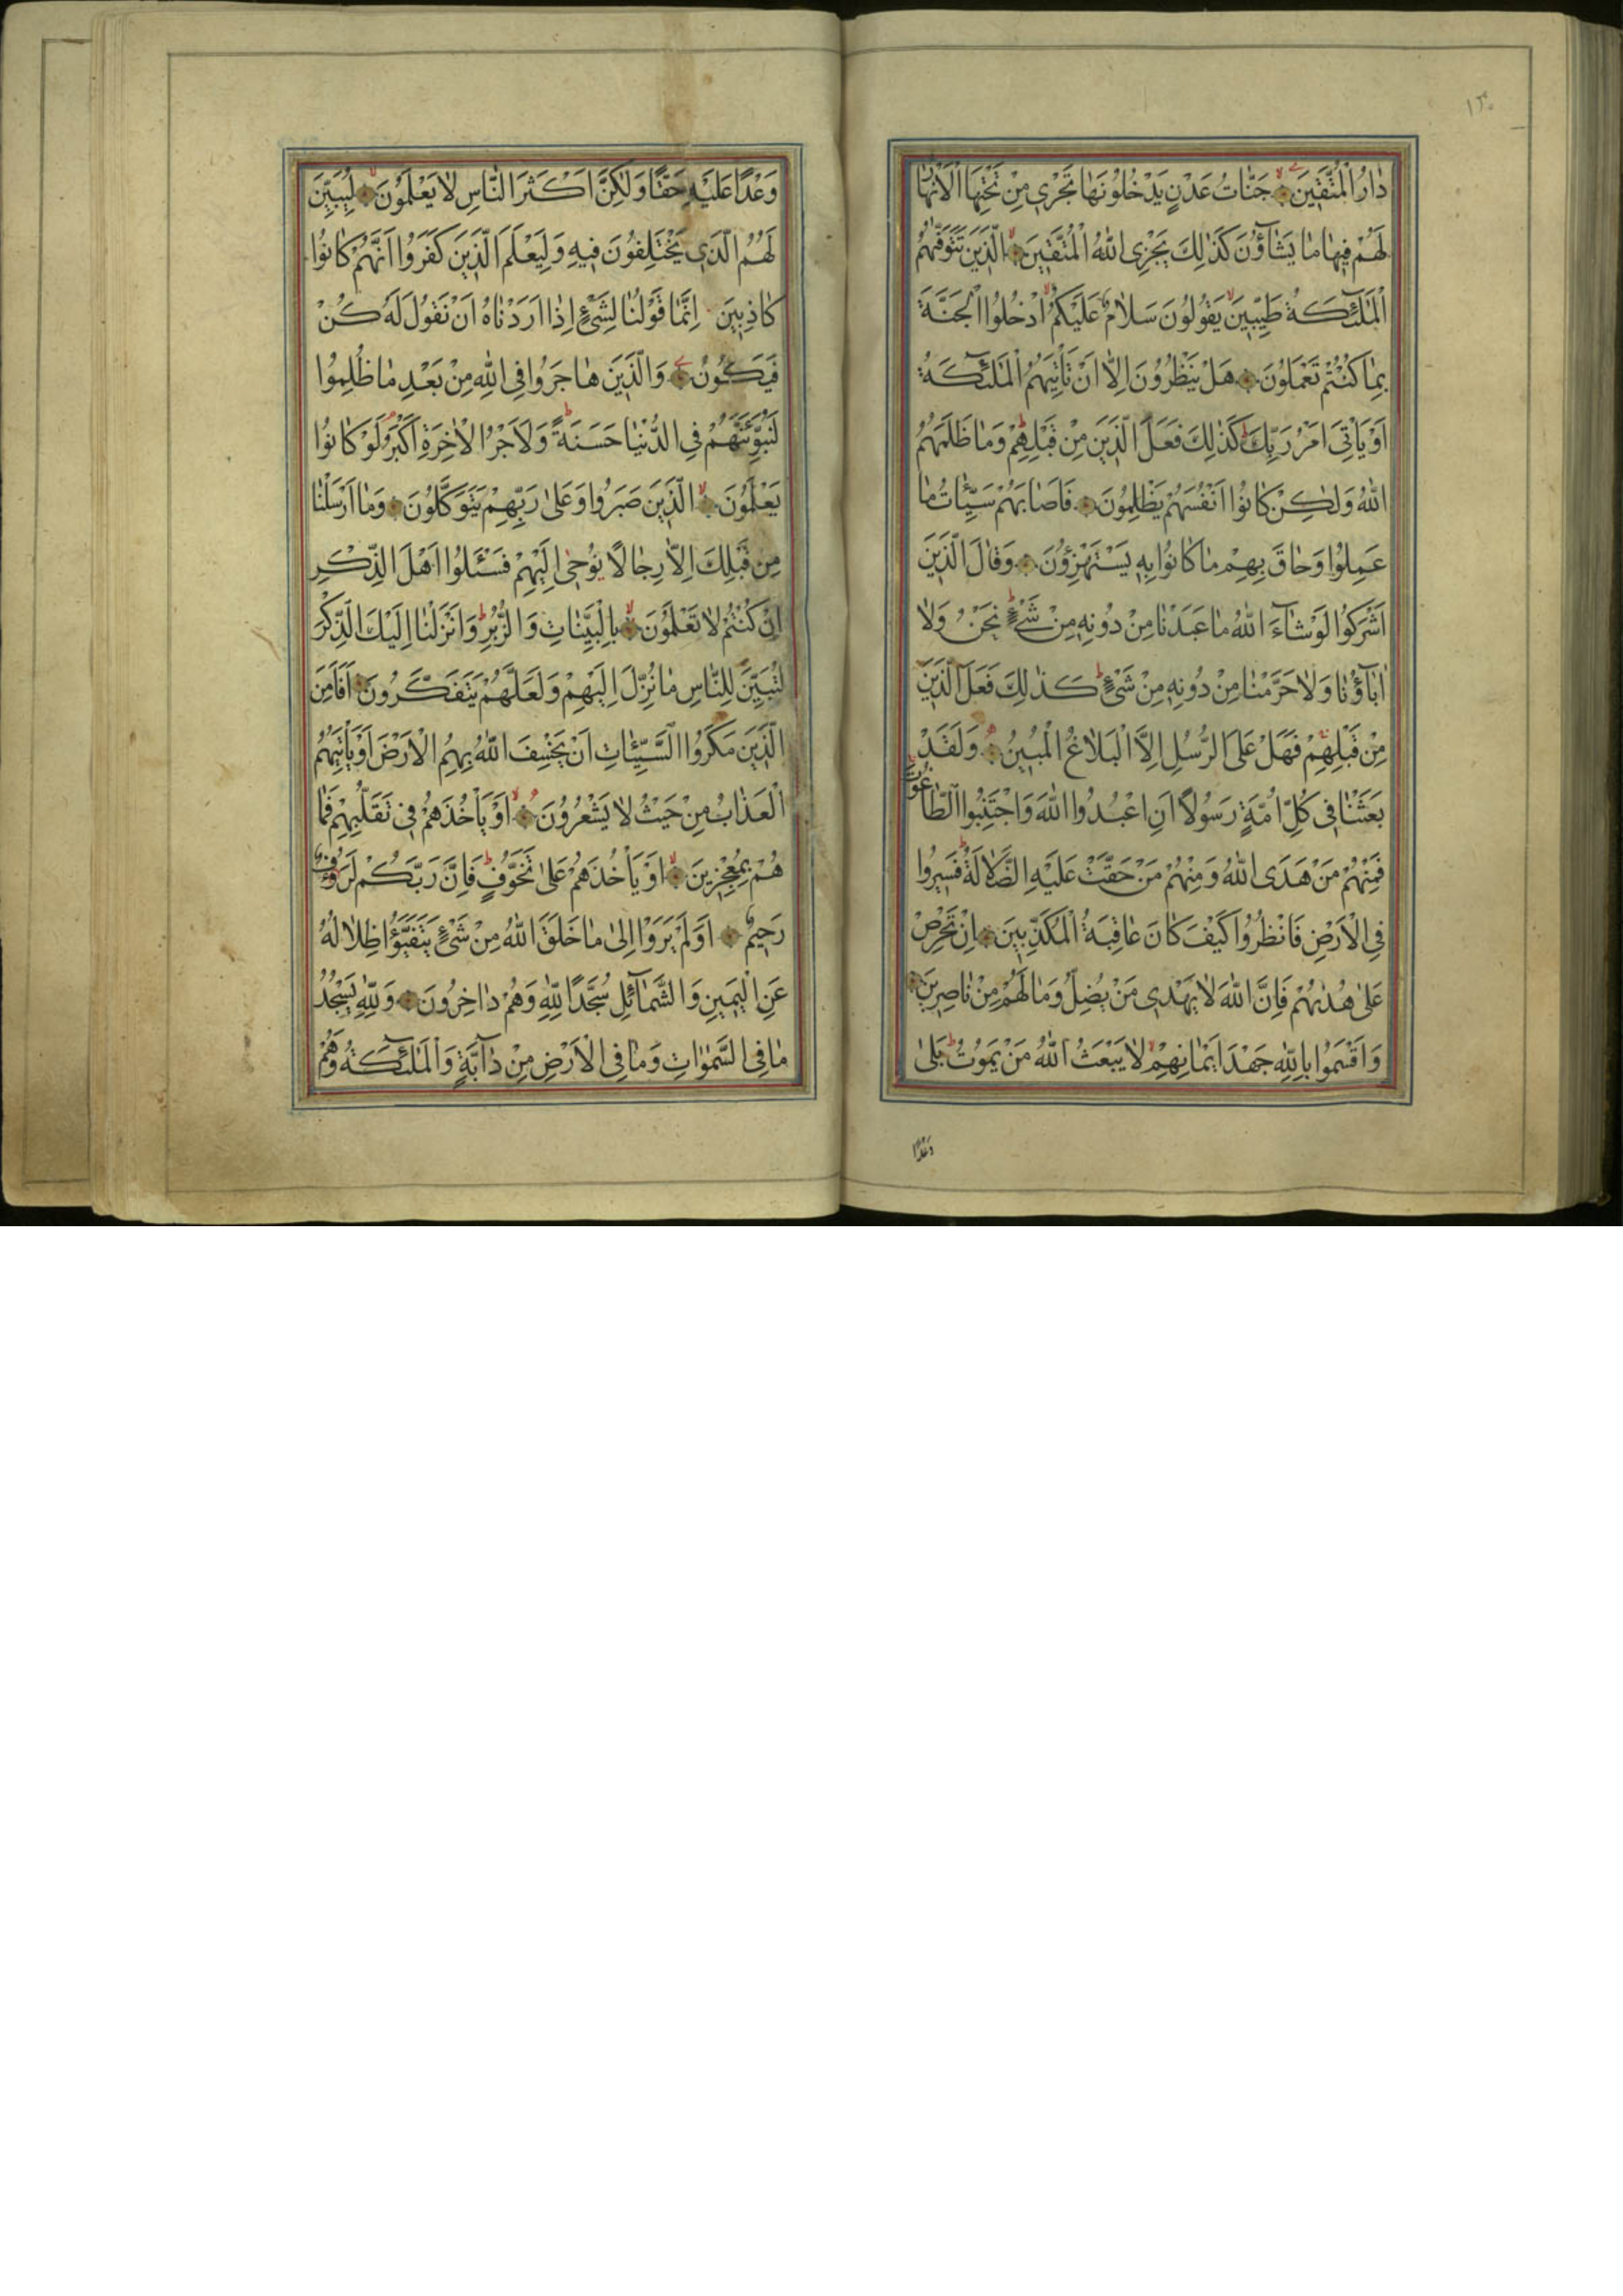 ١٣٠
دَارُ الْمُتَّقِينَ جَنَّاتُ عَدْنٍ يَدْخُلُونَهَا تَجْرِي مِنْ تَحْتِهَا الْاَنْهَارُ
لَهُمْ فِيهَا مَا يَشَاؤُنَ كَذٰلِكَ يَجْزِي اللهُ الْمُتَّقِينَ الَّذِينَ تَتَوَفّٰيهُمُ
الْمَلٰئِكَةُ طَيِّبِينَ يَقُولُونَ سَلَامٌ عَلَيْكُمُ ادْخُلُوا الْجَنَّةَ
بِمَا كُنْتُمْ تَعْمَلُونَ هَلْ يَنْظُرُونَ اِلَّا اَنْ تَأْتِيَهُمُ الْمَلٰئِكَةُ
اَوْ يَأْتِيَ اَمْرُ رَبِّكَ كَذٰلِكَ فَعَلَ الَّذِينَ مِنْ قَبْلِهِمْ وَمَا ظَلَمَهُمُ
اللهُ وَلٰكِنْ كَانُوا اَنْفُسَهُمْ يَظْلِمُونَ فَاَصَابَهُمْ سَيِّئَاتُ مَا
عَمِلُوا وَحَاقَ بِهِمْ مَا كَانُوا بِهِ يَسْتَهْزِؤُنَ وَقَالَ الَّذِينَ
اَشْرَكُوا لَوْ شَاءَ اللهُ مَا عَبَدْنَا مِنْ دُونِهِ مِنْ شَيْءٍ نَحْنُ وَلَا
اٰبَاؤُنَا وَلَا حَرَّمْنَا مِنْ دُونِهِ مِنْ شَيْءٍ كَذٰلِكَ فَعَلَ الَّذِينَ
مِنْ قَبْلِهِمْ فَهَلْ عَلَى الرُّسُلِ اِلَّا الْبَلَاغُ الْمُبِينُ وَلَقَدْ
بَعَثْنَا فِي كُلِّ اُمَّةٍ رَسُولًا اَنِ اعْبُدُوا اللهَ وَاجْتَنِبُوا الطَّاغُوتَ
فَمِنْهُمْ مَنْ هَدَى اللهُ وَمِنْهُمْ مَنْ حَقَّتْ عَلَيْهِ الضَّلَالَةُ فَسِيرُوا
فِي الْاَرْضِ فَانْظُرُوا كَيْفَ كَانَ عَاقِبَةُ الْمُكَذِّبِينَ اِنْ تَحْرِصْ
عَلٰى هُدٰيهُمْ فَاِنَّ اللهَ لَا يَهْدِي مَنْ يُضِلُّ وَمَا لَهُمْ مِنْ نَاصِرِينَ
وَاَقْسَمُوا بِاللهِ جَهْدَ اَيْمَانِهِمْ لَا يَبْعَثُ اللهُ مَنْ يَمُوتُ بَلٰى
وَعْدًا
وَعْدًا عَلَيْهِ حَقًّا وَلٰكِنَّ اَكْثَرَ النَّاسِ لَا يَعْلَمُونَ لِيُبَيِّنَ
لَهُمُ الَّذِي يَخْتَلِفُونَ فِيهِ وَلِيَعْلَمَ الَّذِينَ كَفَرُوا اَنَّهُمْ كَانُوا
كَاذِبِينَ اِنَّمَا قَوْلُنَا لِشَيْءٍ اِذَا اَرَدْنَاهُ اَنْ نَقُولَ لَهُ كُنْ
فَيَكُونُ وَالَّذِينَ هَاجَرُوا فِي اللهِ مِنْ بَعْدِ مَا ظُلِمُوا
لَنُبَوِّئَنَّهُمْ فِي الدُّنْيَا حَسَنَةً وَلَاَجْرُ الْاٰخِرَةِ اَكْبَرُ لَوْ كَانُوا
يَعْلَمُونَ الَّذِينَ صَبَرُوا وَعَلٰى رَبِّهِمْ يَتَوَكَّلُونَ وَمَا اَرْسَلْنَا
مِنْ قَبْلِكَ اِلَّا رِجَالًا يُوحٰى اِلَيْهِمْ فَسْئَلُوا اَهْلَ الذِّكْرِ
اِنْ كُنْتُمْ لَا تَعْلَمُونَ بِالْبَيِّنَاتِ وَالزُّبُرِ وَاَنْزَلْنَا اِلَيْكَ الذِّكْرَ
لِتُبَيِّنَ لِلنَّاسِ مَا نُزِّلَ اِلَيْهِمْ وَلَعَلَّهُمْ يَتَفَكَّرُونَ اَفَاَمِنَ
الَّذِينَ مَكَرُوا السَّيِّئَاتِ اَنْ يَخْسِفَ اللهُ بِهِمُ الْاَرْضَ اَوْ يَأْتِيَهُمُ
الْعَذَابُ مِنْ حَيْثُ لَا يَشْعُرُونَ اَوْ يَأْخُذَهُمْ فِي تَقَلُّبِهِمْ فَمَا
هُمْ بِمُعْجِزِينَ اَوْ يَأْخُذَهُمْ عَلٰى تَخَوُّفٍ فَاِنَّ رَبَّكُمْ لَرَؤُفٌ
رَحِيمٌ اَوَلَمْ يَرَوْا اِلٰى مَا خَلَقَ اللهُ مِنْ شَيْءٍ يَتَفَيَّؤُا ظِلَالُهُ
عَنِ الْيَمِينِ وَالشَّمَائِلِ سُجَّدًا لِلّٰهِ وَهُمْ دَاخِرُونَ وَلِلّٰهِ يَسْجُدُ
مَا فِي السَّمٰوَاتِ وَمَا فِي الْاَرْضِ مِنْ دَابَّةٍ وَالْمَلٰئِكَةُ وَهُمْ